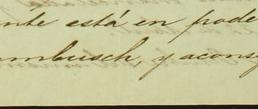 nte está en pode
mbusch, y acons